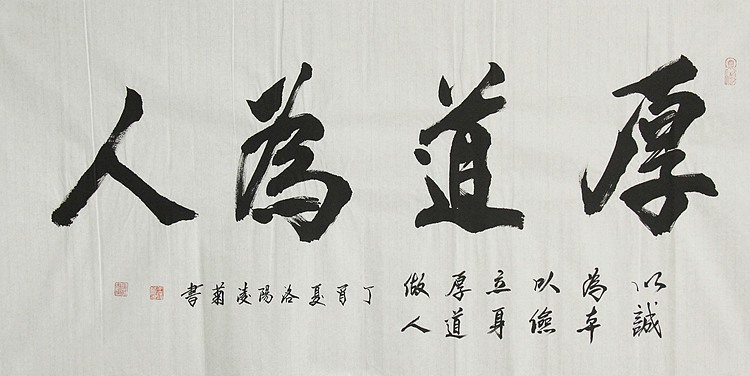 厚道為人
以誠
為本
以儉
立身
厚道
做人
丁酉夏洛陽凌菊書